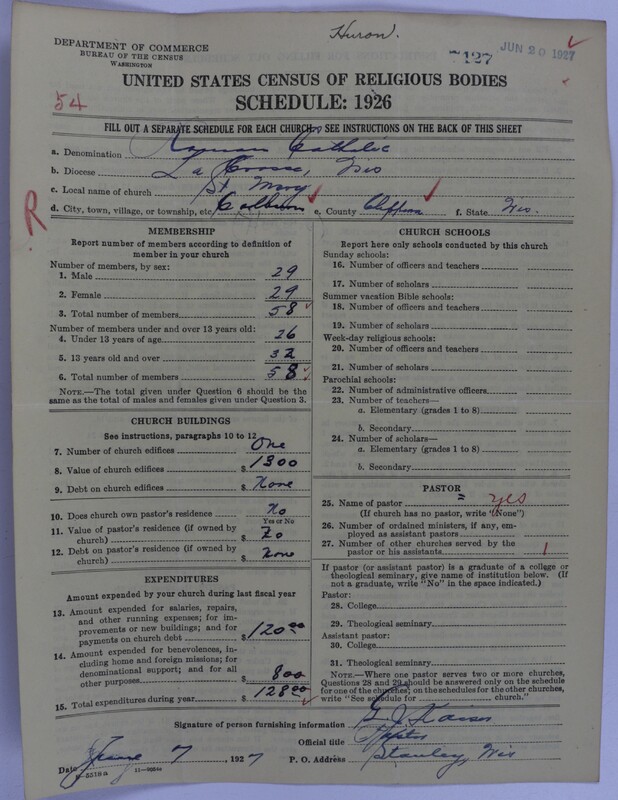 Huron.
DEPARTMENT OF COMMERCE
BUREAU OF THE CENSUS
WASHINGTON
127 JUN 20 1927
UNITED STATES CENSUS OF RELIGIOUS BODIES
54
SCHEDULE: 1926
FILL OUT A SEPARATE SCHEDULE FOR EACH CHURCH. SEE INSTRUCTIONS ON THE BACK OF THIS SHEET
a. Denomination Roman Catholic
b. Diocese La Crosse, Wis
c. Local name of church St. Mary
d. City, town, village, or township, etc. Colburn e. County Chippewa f. State Wis.
R
MEMBERSHIP
Report number of members according to definition of
member in your church
Number of members, by sex:
1. Male 29
2. Female 29
3. Total number of members 58
Number of members under and over 13 years old:
4. Under 13 years of age 26
5. 13 years old and over 32
6. Total number of members 58
NOTE.—The total given under Question 6 should be
the same as the total of males and females given under Question 3.
CHURCH BUILDINGS
See instructions, paragraphs 10 to 12
7. Number of church edifices One
8. Value of church edifices $ 1300
9. Debt on church edifices $ None
10. Does church own pastor's residence No
Yes or No
11. Value of pastor's residence (if owned by
church) $ No
12. Debt on pastor's residence (if owned by
church) $ None
EXPENDITURES
Amount expended by your church during last fiscal year
13. Amount expended for salaries, repairs,
and other running expenses; for im-
provements or new buildings; and for
payments on church debt $ 120 00
14. Amount expended for benevolences, in-
cluding home and foreign missions; for
denominational support; and for all
other purposes $ 8 00
15. Total expenditures during year $ 128 00
CHURCH SCHOOLS
Report here only schools conducted by this church
Sunday schools:
16. Number of officers and teachers
17. Number of scholars
Summer vacation Bible schools:
18. Number of officers and teachers
19. Number of scholars
Week-day religious schools:
20. Number of officers and teachers
21. Number of scholars
Parochial schools:
22. Number of administrative officers
23. Number of teachers—
a. Elementary (grades 1 to 8)
b. Secondary
24. Number of scholars—
a. Elementary (grades 1 to 8)
b. Secondary
PASTOR
25. Name of pastor = yes
(If church has no pastor, write "None")
26. Number of ordained ministers, if any, em-
ployed as assistant pastors
27. Number of other churches served by the
pastor or his assistants 1
If pastor (or assistant pastor) is a graduate of a college or
theological seminary, give name of institution below. (If
not a graduate, write "No" in the space indicated.)
Pastor:
28. College
29. Theological seminary
Assistant pastor:
30. College
31. Theological seminary
NOTE.—Where one pastor serves two or more churches,
Questions 28 and 29 should be answered only on the schedule
for one of the churches; on the schedules for the other churches,
write "See schedule for ______ church."
Signature of person furnishing information
Official title Pastor
Date June 7, 1927 P. O. Address Stanley, Wis